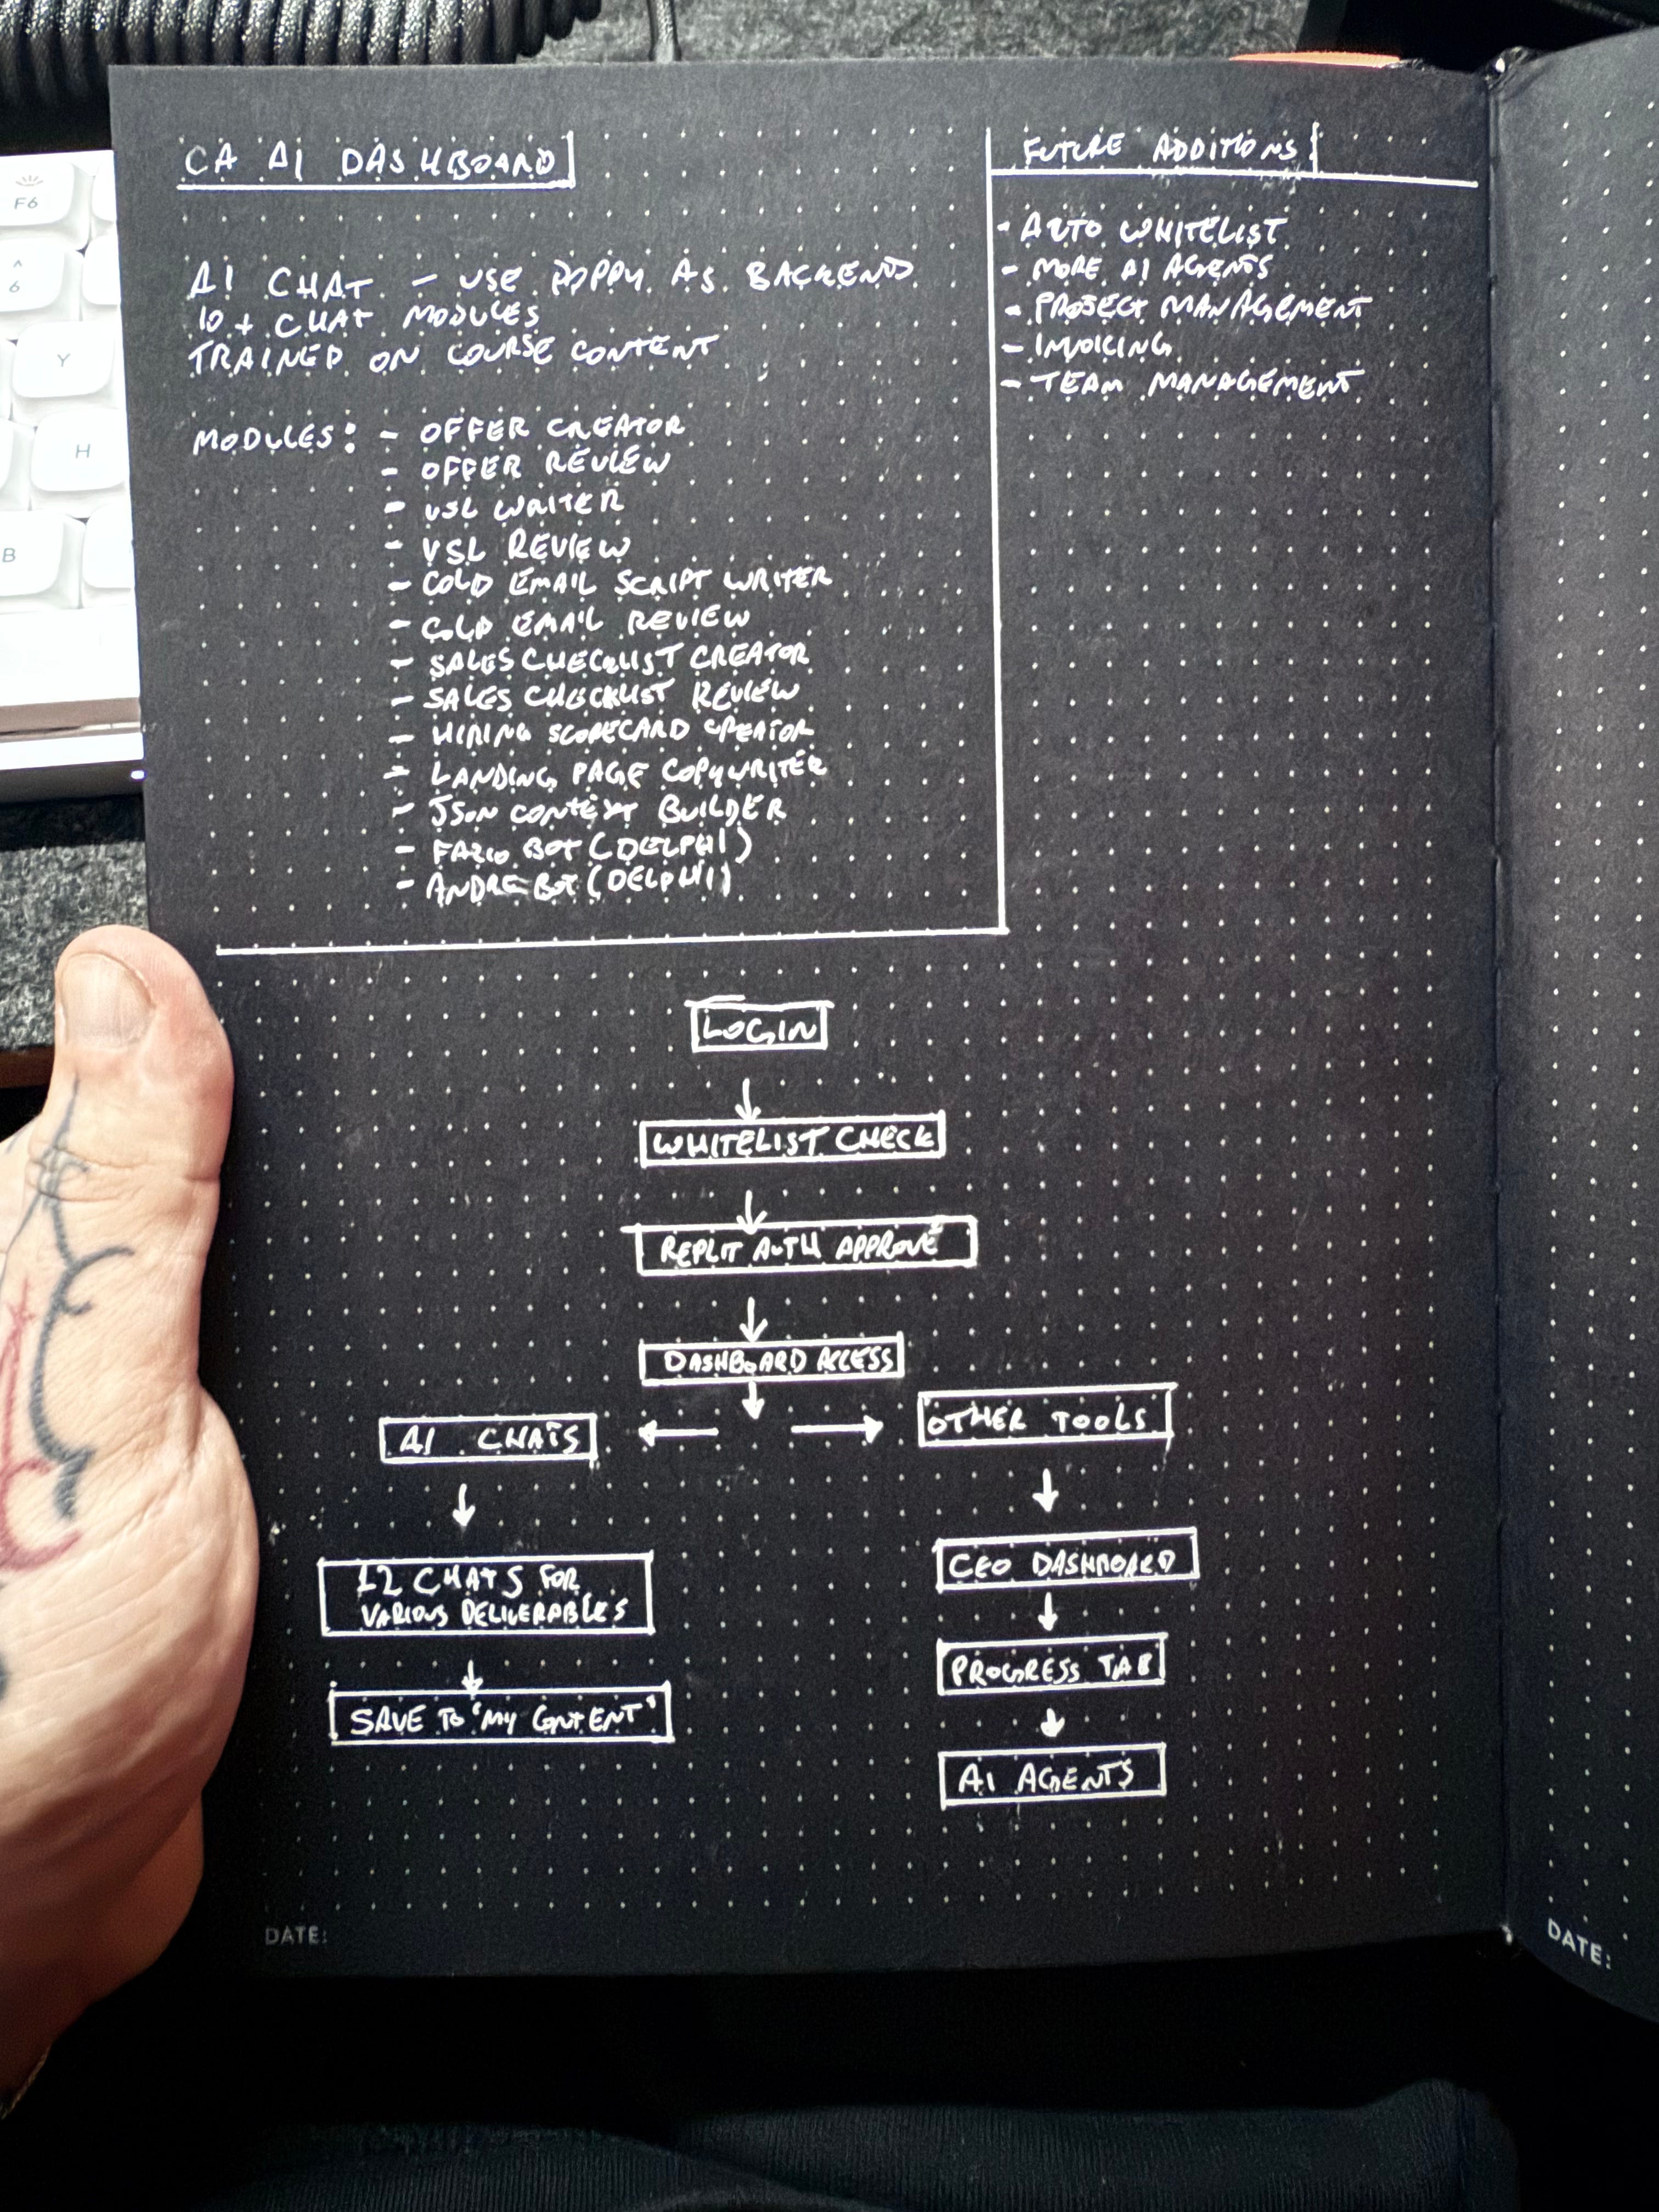 CA AI DASHBOARD
AI CHAT - USE POPPY AS BACKEND
10+ CHAT MODULES
TRAINED ON COURSE CONTENT
MODULES: - OFFER CREATOR
- OFFER REVIEW
- VSL WRITER
- VSL REVIEW
- COLD EMAIL SCRIPT WRITER
- COLD EMAIL REVIEW
- SALES CHECKLIST CREATOR
- SALES CHECKLIST REVIEW
- HIRING SCORECARD CREATOR
- LANDING PAGE COPYWRITER
- JSON CONTEXT BUILDER
- BOT (DELPHI)
- ANDRE BOT (DELPHI)
FUTURE ADDITIONS
- AUTO WHITELIST
- MORE AI AGENTS
- PROJECT MANAGEMENT
- INVOICING
- TEAM MANAGEMENT
LOGIN
WHITELIST CHECK
REPLIT AUTH APPROVE
DASHBOARD ACCESS
AI CHATS
OTHER TOOLS
12 CHATS FOR
VARIOUS DELIVERABLES
SAVE TO "MY CONTENT"
CEO DASHBOARD
PROGRESS TAB
AI AGENTS
DATE:
DATE:
F6
^
6
Y
H
B